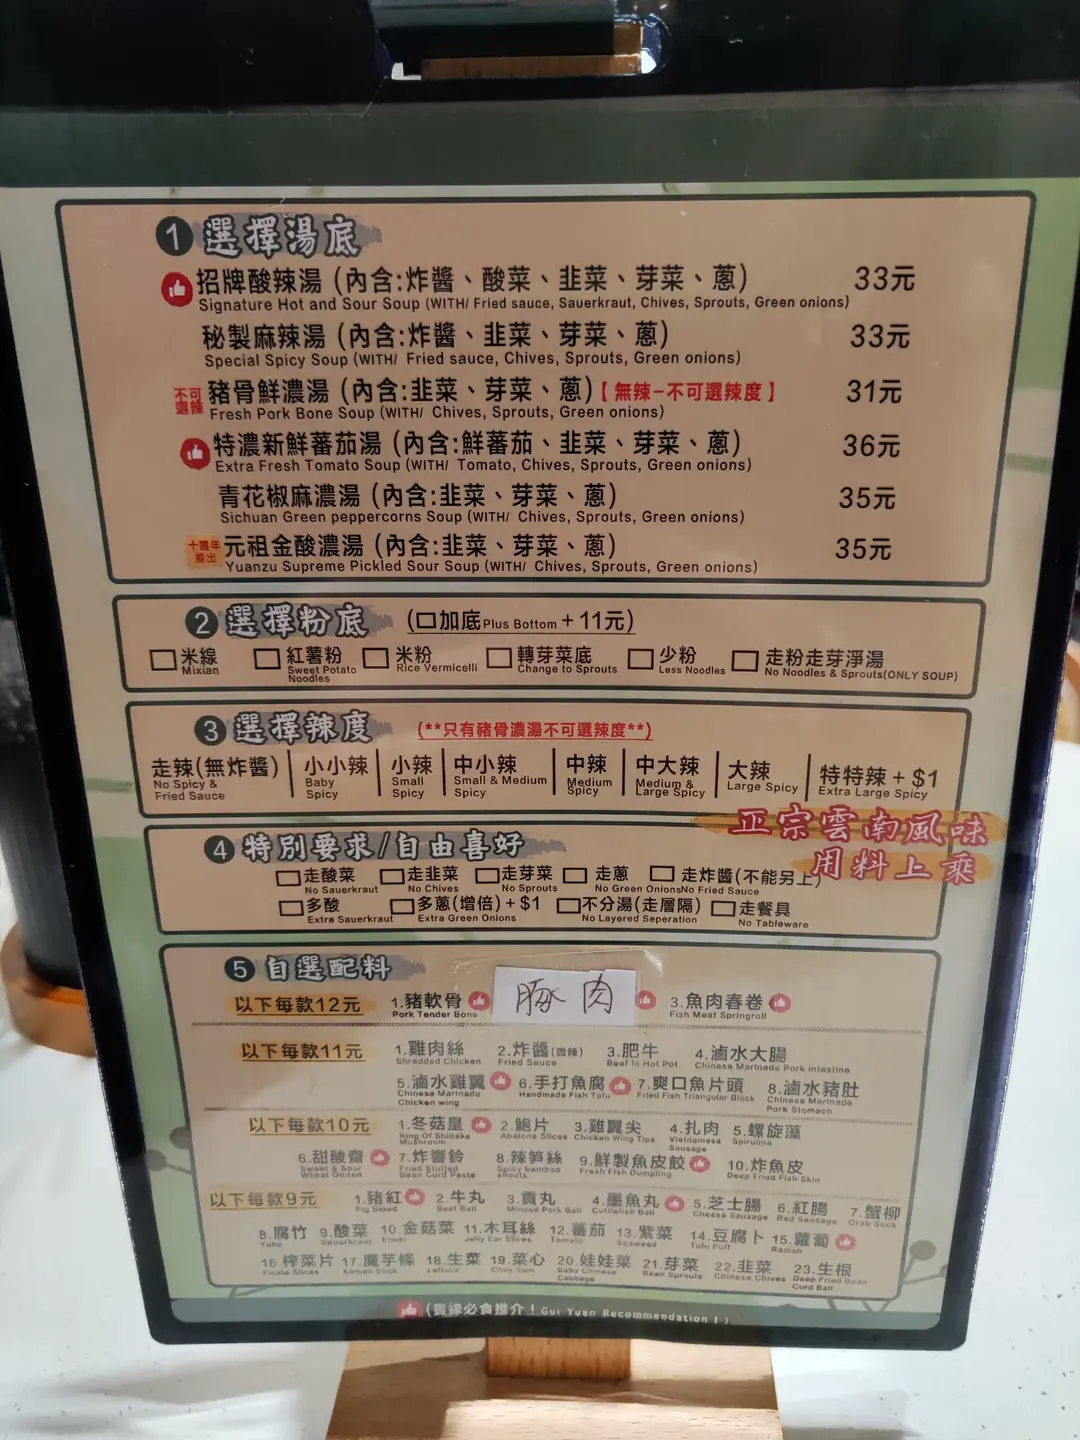 1 選擇湯底
招牌酸辣湯 (內含:炸醬、酸菜、韭菜、芽菜、蔥) 33元
Signature Hot and Sour Soup (WITH/ Fried sauce, Sauerkraut, Chives, Sprouts, Green onions)
秘製麻辣湯 (內含:炸醬、韭菜、芽菜、蔥) 33元
Special Spicy Soup (WITH/ Fried sauce, Chives, Sprouts, Green onions)
不可選辣 豬骨鮮濃湯 (內含:韭菜、芽菜、蔥)【無辣-不可選辣度】 31元
Fresh Pork Bone Soup (WITH/ Chives, Sprouts, Green onions)
特濃新鮮蕃茄湯 (內含:鮮蕃茄、韭菜、芽菜、蔥) 36元
Extra Fresh Tomato Soup (WITH/ Tomato, Chives, Sprouts, Green onions)
青花椒麻濃湯 (內含:韭菜、芽菜、蔥) 35元
Sichuan Green peppercorns Soup (WITH/ Chives, Sprouts, Green onions)
十週年 元祖金酸濃湯 (內含:韭菜、芽菜、蔥) 35元
Yuanzu Supreme Pickled Sour Soup (WITH/ Chives, Sprouts, Green onions)
2 選擇粉底 (口加底 Plus Bottom + 11元)
米線 紅薯粉 米粉 轉芽菜底 少粉 走粉走芽淨湯
Mixian Sweet Potato Noodles Rice Vermicelli Change to Sprouts Less Noodles No Noodles & Sprouts(ONLY SOUP)
3 選擇辣度 (**只有豬骨濃湯不可選辣度**)
走辣(無炸醬) 小小辣 小辣 中小辣 中辣 中大辣 大辣 特特辣 + $1
No Spicy & Fried Sauce Baby Spicy Small Spicy Small & Medium Spicy Medium Spicy Medium & Large Spicy Large Spicy Extra Large Spicy
正宗雲南風味
用料上乘
4 特別要求/自由喜好
走酸菜 走韭菜 走芽菜 走蔥 走炸醬(不能另上)
No Sauerkraut No Chives No Sprouts No Green Onions No Fried Sauce
多酸 多蔥(增倍) + $1 不分湯(走層隔) 走餐具
Extra Sauerkraut Extra Green Onions No Layered Seperation No Tableware
5 自選配料
以下每款12元 1.豬軟骨 豚肉 3.魚肉春卷
Pork Tender Bone Fish Meat Springroll
以下每款11元 1.雞肉絲 2.炸醬(微辣) 3.肥牛 4.滷水大腸
Shredded Chicken Fried Sauce Beef in Hot Pot Chinese Marinade Pork Intestine
5.滷水雞翼 6.手打魚腐 7.爽口魚片頭 8.滷水豬肚
Chinese Marinade Chicken wing Handmade Fish Tofu Fried Fish Triangular Block Chinese Marinade Pork Stomach
以下每款10元 1.冬菇皇 2.鮑片 3.雞翼尖 4.扎肉 5.螺旋藻
King Of Shiitake Mushroom Abalone Slices Chicken Wing Tips Vietnamese Sausage Spirulina
6.甜酸齋 7.炸響鈴 8.辣筍絲 9.鮮製魚皮餃 10.炸魚皮
Sweet & Sour Wheat Gluten Fried Stuffed Bean Curd Paste Spicy bamboo shoots Fresh Fish Dumpling Deep Fried Fish Skin
以下每款9元 1.豬紅 2.牛丸 3.貢丸 4.墨魚丸 5.芝士腸 6.紅腸 7.蟹柳
Pig Blood Beef Ball Minced Pork Ball Cuttlefish Ball Cheese Sausage Red Sausage Crab Stick
8.腐竹 9.酸菜 10.金菇菜 11.木耳絲 12.蕃茄 13.紫菜 14.豆腐卜 15.蘿蔔
Yuba Sauerkraut Enoki Jelly Ear Slices Tomato Seaweed Tofu Puff Radish
16.榨菜片 17.魔芋條 18.生菜 19.菜心 20.娃娃菜 21.芽菜 22.韭菜 23.生根
Pickle Slices Konjac Stick Lettuce Choy Sum Baby Chinese Cabbage Bean Sprouts Chinese Chives Deep Fried Bean Curd Ball
(貴緣必食推介！Gui Yuan Recommendation ! )